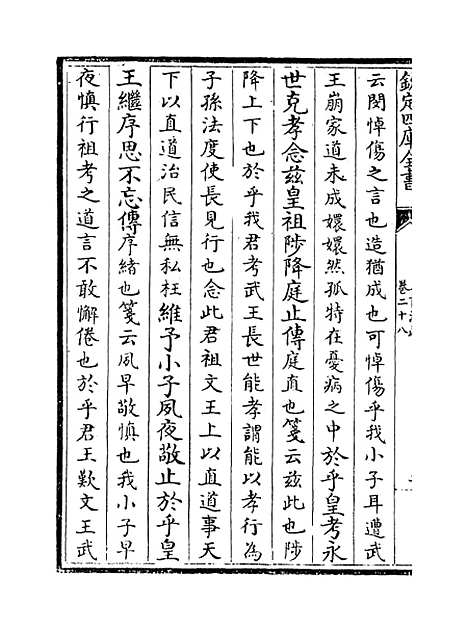 欽定四庫全書
卷二十八
云閔悼傷之言也造猶成也可悼傷乎我小子耳遭武
王崩家道未成嬛嬛然孤特在憂病之中於乎皇考永
世克孝念茲皇祖陟降庭止傳庭直也箋云茲此也陟
降上下也於乎我君考武王長世能孝謂能以孝行為
子孫法度使長見行也念此君祖文王上以直道事天
下以直道治民信無私枉維予小子夙夜敬止於乎皇
王繼序思不忘傳序緒也箋云夙早敬慎也我小子早
夜慎行祖考之道言不敢懈倦也於乎君王歎文王武